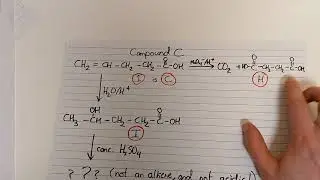 Compound C
CH₂ = CH - CH₂ - CH₂ - C - OH MnO₄⁻/H⁺ CO₂ + HO-C-CH₂-CH₂-C-OH
O O O
I C H
H₂O/H⁺
OH O
CH₃ - CH - CH₂ - CH₂ - C - OH
I
conc. H₂SO₄
? ? ? (not an alkene, and not acidic)